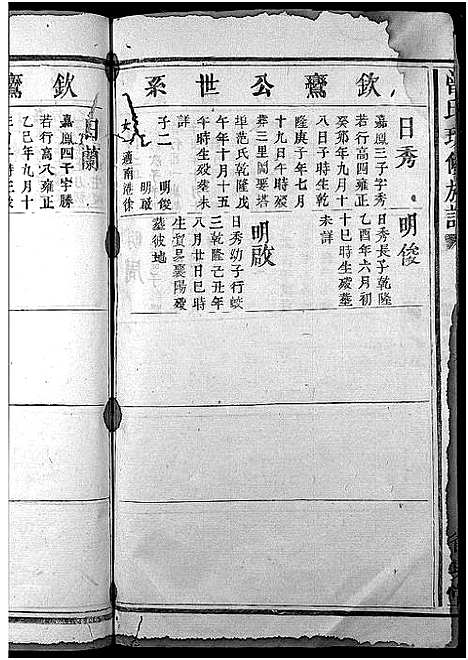 曾氏 修族譜
欽鸞公世系
日秀
嘉鳳三子字秀
若行高四雍正
癸邜年九月十
八日子時生乾
隆庚子年七月
十九日午時歿
葬三里岡婁塔
垻范氏乾隆戊
午年十月十五
午時生歿葬未
詳
子二 明俊 明啟
女 適南港徐
明俊
日秀長子乾隆
乙酉年六月初
十巳時生歿葬
未詳
明啟
日秀幼子行蛟
三乾隆己丑年
八月廿日巳時
生貿易襄陽歿
葬彼地
欽鸞
日蘭
嘉鳳四子字勝
若行高六雍正
乙巳年九月十